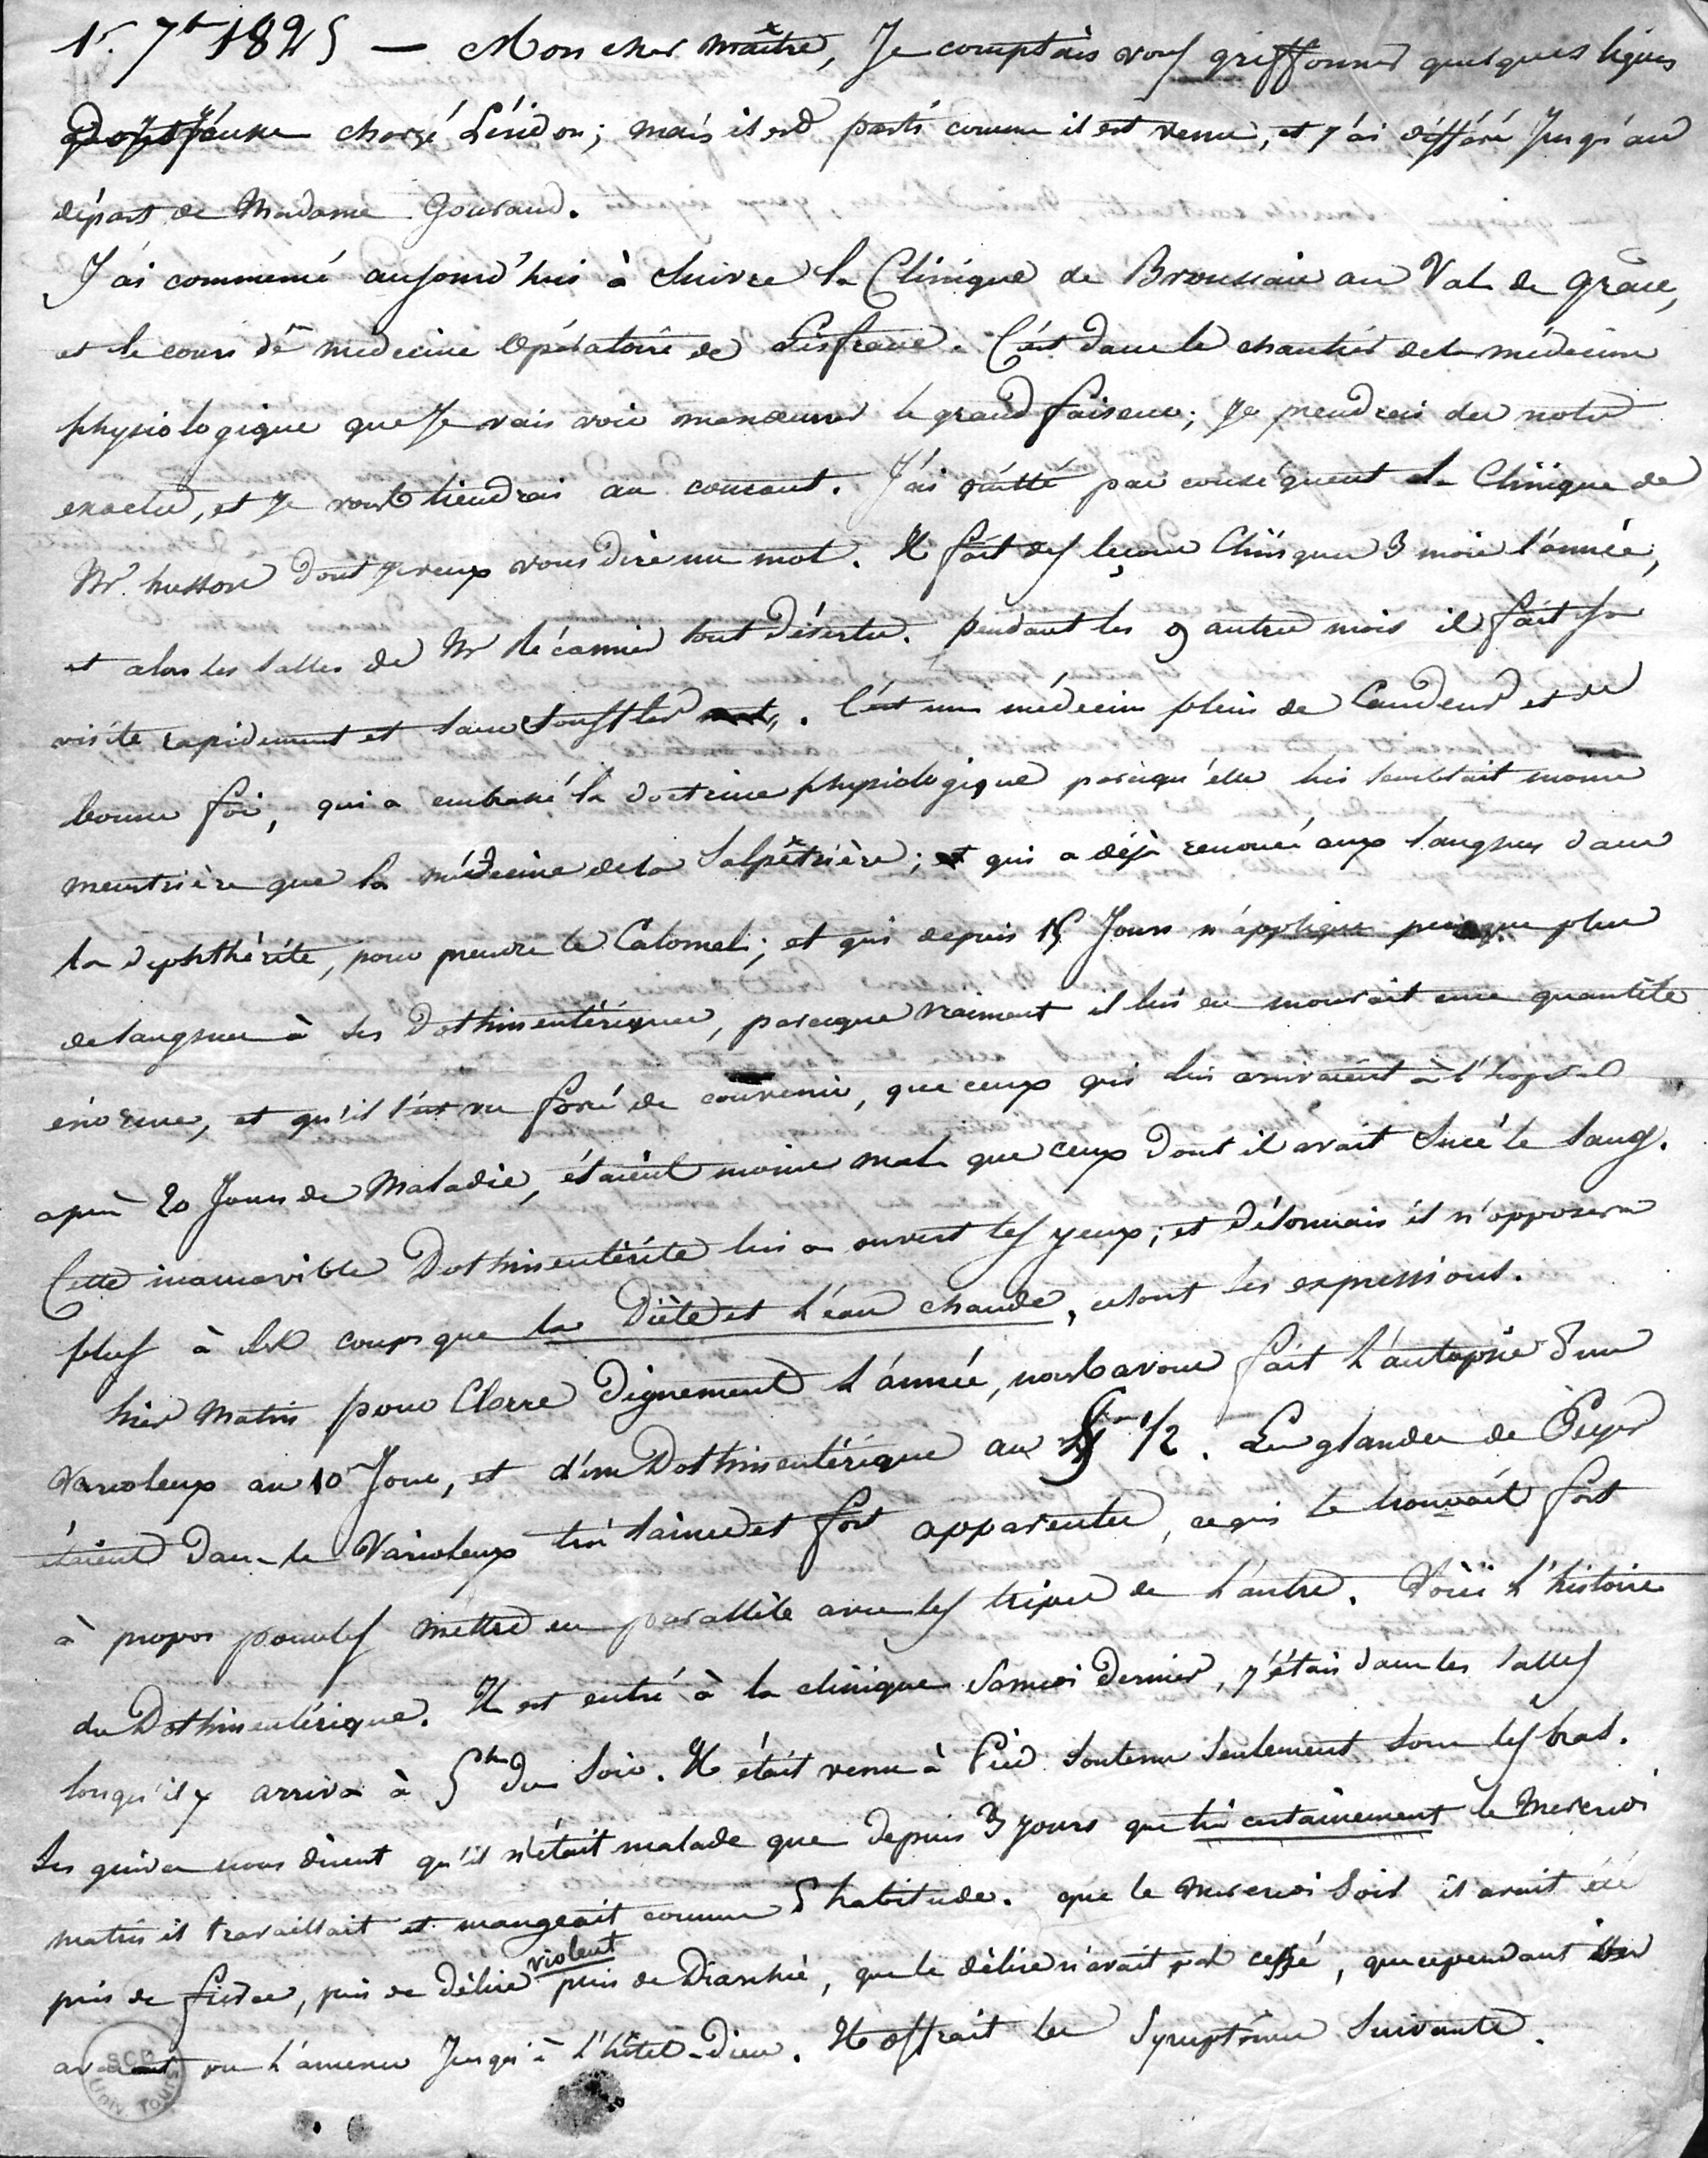 1r. 7b 1825 — Mon cher maître, Je comptais vous griffonner quelques lignes
dont j'eusse chargé Léridon; mais il est parti comme il est venu, et j'ai différé Jusqu'au
départ de Madame Gouraud.
J'ai commencé aujourd'hui à suivre la Clinique de Broussais au Val de grâce,
et le cours de médecine Opératoire de Lisfranc. C'est dans le chantier de la médecine
physiologique que Je vais voir manœuvrer le grand faiseur; Je prendrai des notes
exactes, et Je vous tiendrai au courant. J'ai quitté par conséquent la Clinique de
Mr. husson dont je veux vous dire un mot. Il fait des leçons Cliniques 3 mois l'année,
et alors les salles de Mr Récamier sont désertes. pendant les 9 autres mois il fait sa
visite rapidement et sans souffler. C'est un médecin plein de Candeur et de
bonne foi, qui a embrassé la doctrine physiologique parcequ'elle lui semblait moins
meurtrière que la médecine de la Salpêtrière; qui a déjà renoncé aux sangsues dans
la diphthérite, pour prendre le Calomel; et qui depuis 15 Jours n'applique presque plus
de sangsues à ses Dothinentériques, parceque vraiment il lui en mourait une quantité
énorme, et qu'il s'est vu forcé de convenir, que ceux qui lui arrivaient à l'hopital
après 20 Jours de Maladie, étaient moins mal que ceux dont il avait sucé le sang.
Cette inamovible Dothinentérite lui a ouvert les yeux; et désormais il n'opposera
plus à ses coups que la Diète et l'eau chaude, ce sont ses expressions.
hier matin pour Clorre Dignement l'année, nous avons fait l'autopsie d'un
Varioleux au 10e Jour, et d'un Dothinentérique au 5e 1/2. Les glandes de Peyer
étaient dans le Varioleux très saines et fort apparentes, ce qui se trouvait fort
à propos pour les mettre en parallèle avec les tripes de l'autre. Voici l'histoire
du Dothinentérique. Il est entré à la clinique Samedi dernier, j'étais dans les salles
lorsqu'il y arriva à 5h du soir. Il était venu à Pied soutenu seulement sous les bras.
Ses guides nous dirent qu'il n'était malade que depuis 3 jours que très certainement le Mercredi
matin il travaillait et mangeait comme d'habitude. que le mercredi soir il avait été
pris de fièvre, puis de délire violent puis de Diarrhée, que le délire n'avait pas cessé, que cependant ils
avaient pu l'amener Jusqu'à l'hôtel-Dieu. Il offrait les Symptômes suivants.
SCD
Univ. Tours